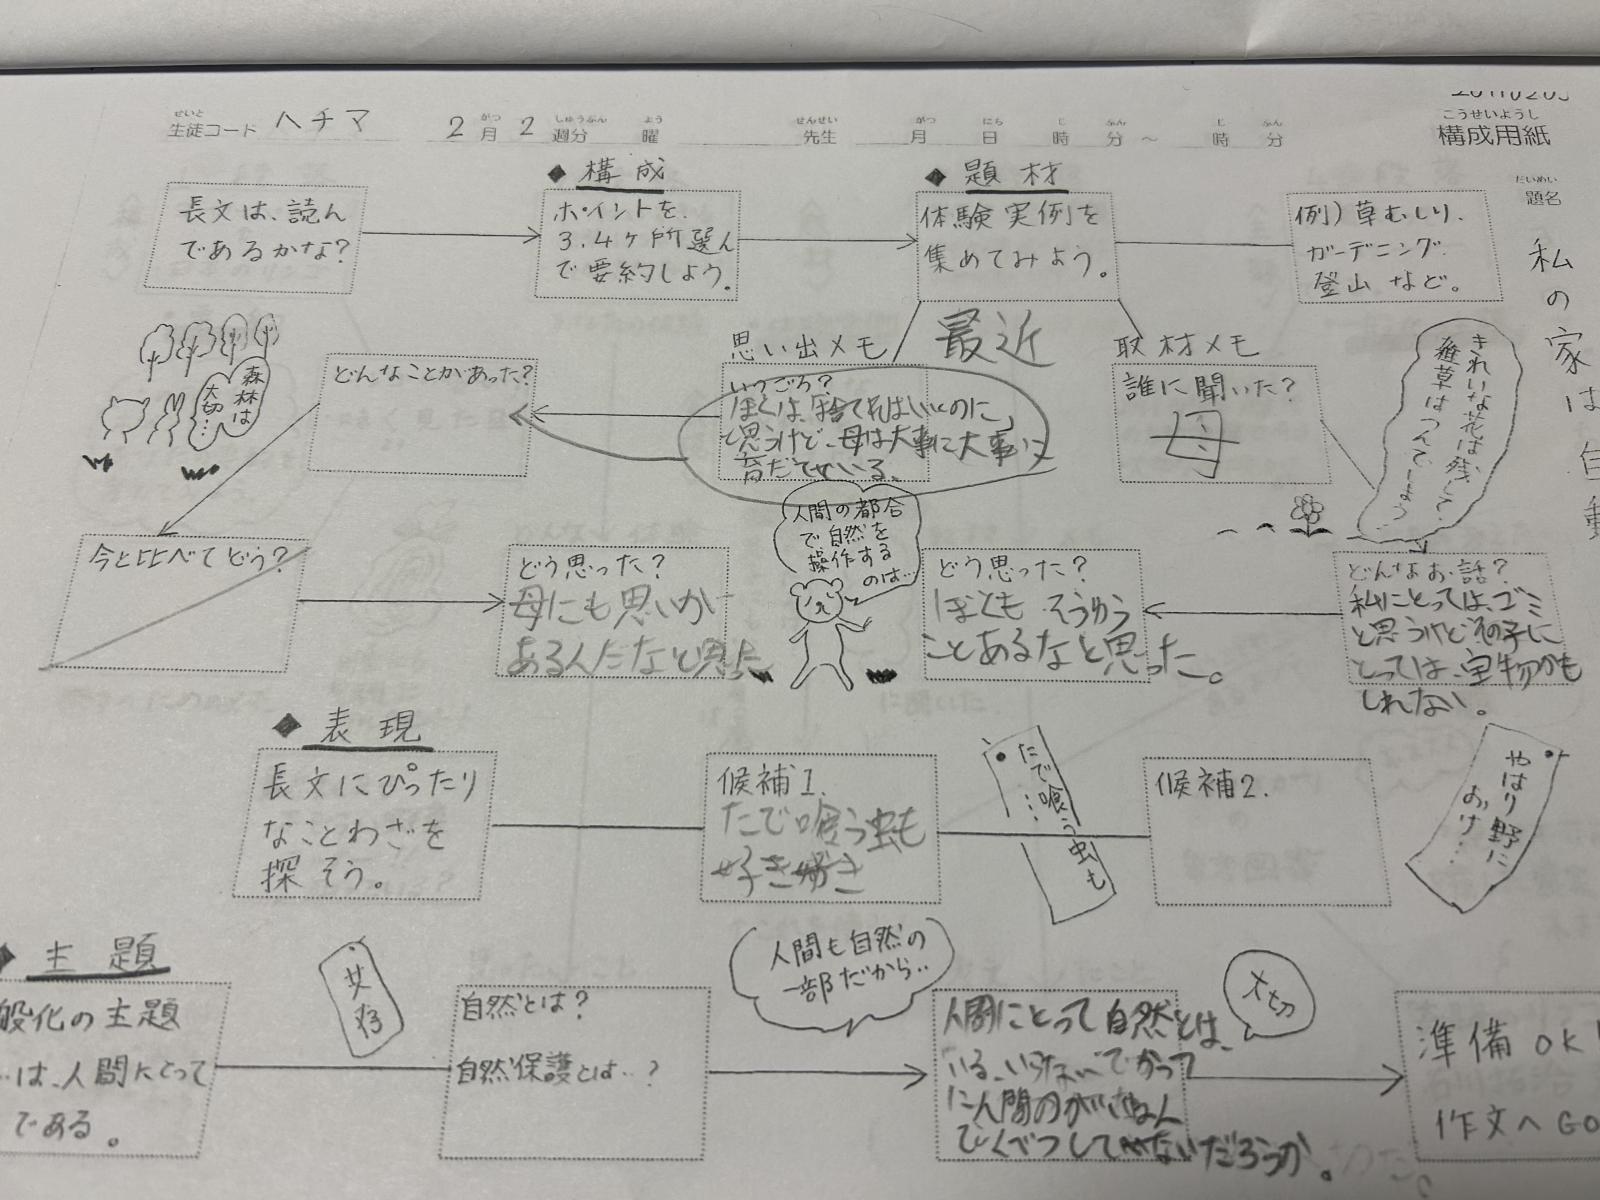 せいと
生徒コード ハチマ
2月2週分 曜
がつ しゅうぶん よう
せんせい
先生
がつ にち じ ふん じ ふん
月 日 時 分 ~ 時 分
こうせいようし
構成用紙
だいめい
題名
私の家は自動
◆構成
◆題材
長文は、読ん
であるかな?
ポイントを、
3.4ヶ所選ん
で要約しよう。
体験実例を
集めてみよう。
例)草むしり、
ガーデニング
登山など。
思い出メモ
最近
いつごろ?
ぼくは、捨てればいいのに、
と思うけど、母は大事に大事に
育だてている。
取材メモ
誰に聞いた?
母
きれいな花は残して、
雑草はつんでしまう…
どんなことがあった?
森林は
大切…
今と比べてどう?
どう思った?
母にも思いが
あるんだなと思った
人間の都合
で自然を
操作する
のは…
どう思った?
ぼくも そうゆう
ことあるなと思った。
どんなお話?
私にとっては、ゴミ
と思うけどその子に
とっては、宝物かも
しれない。
◆表現
長文にぴったり
なことわざを
探そう。
候補1.
たで喰う虫も
好き好き
たで喰う虫も
…
候補2.
やはり野に
おけ…
◆主題
般化の主題
…は、人間にとって
である。
共存
自然とは?
自然保護とは…?
人間も自然の
一部だから…
人間にとって自然とは、
いる、いらないでかって
に人間の
してないだろうか。
大切
準備OK!
作文へGO